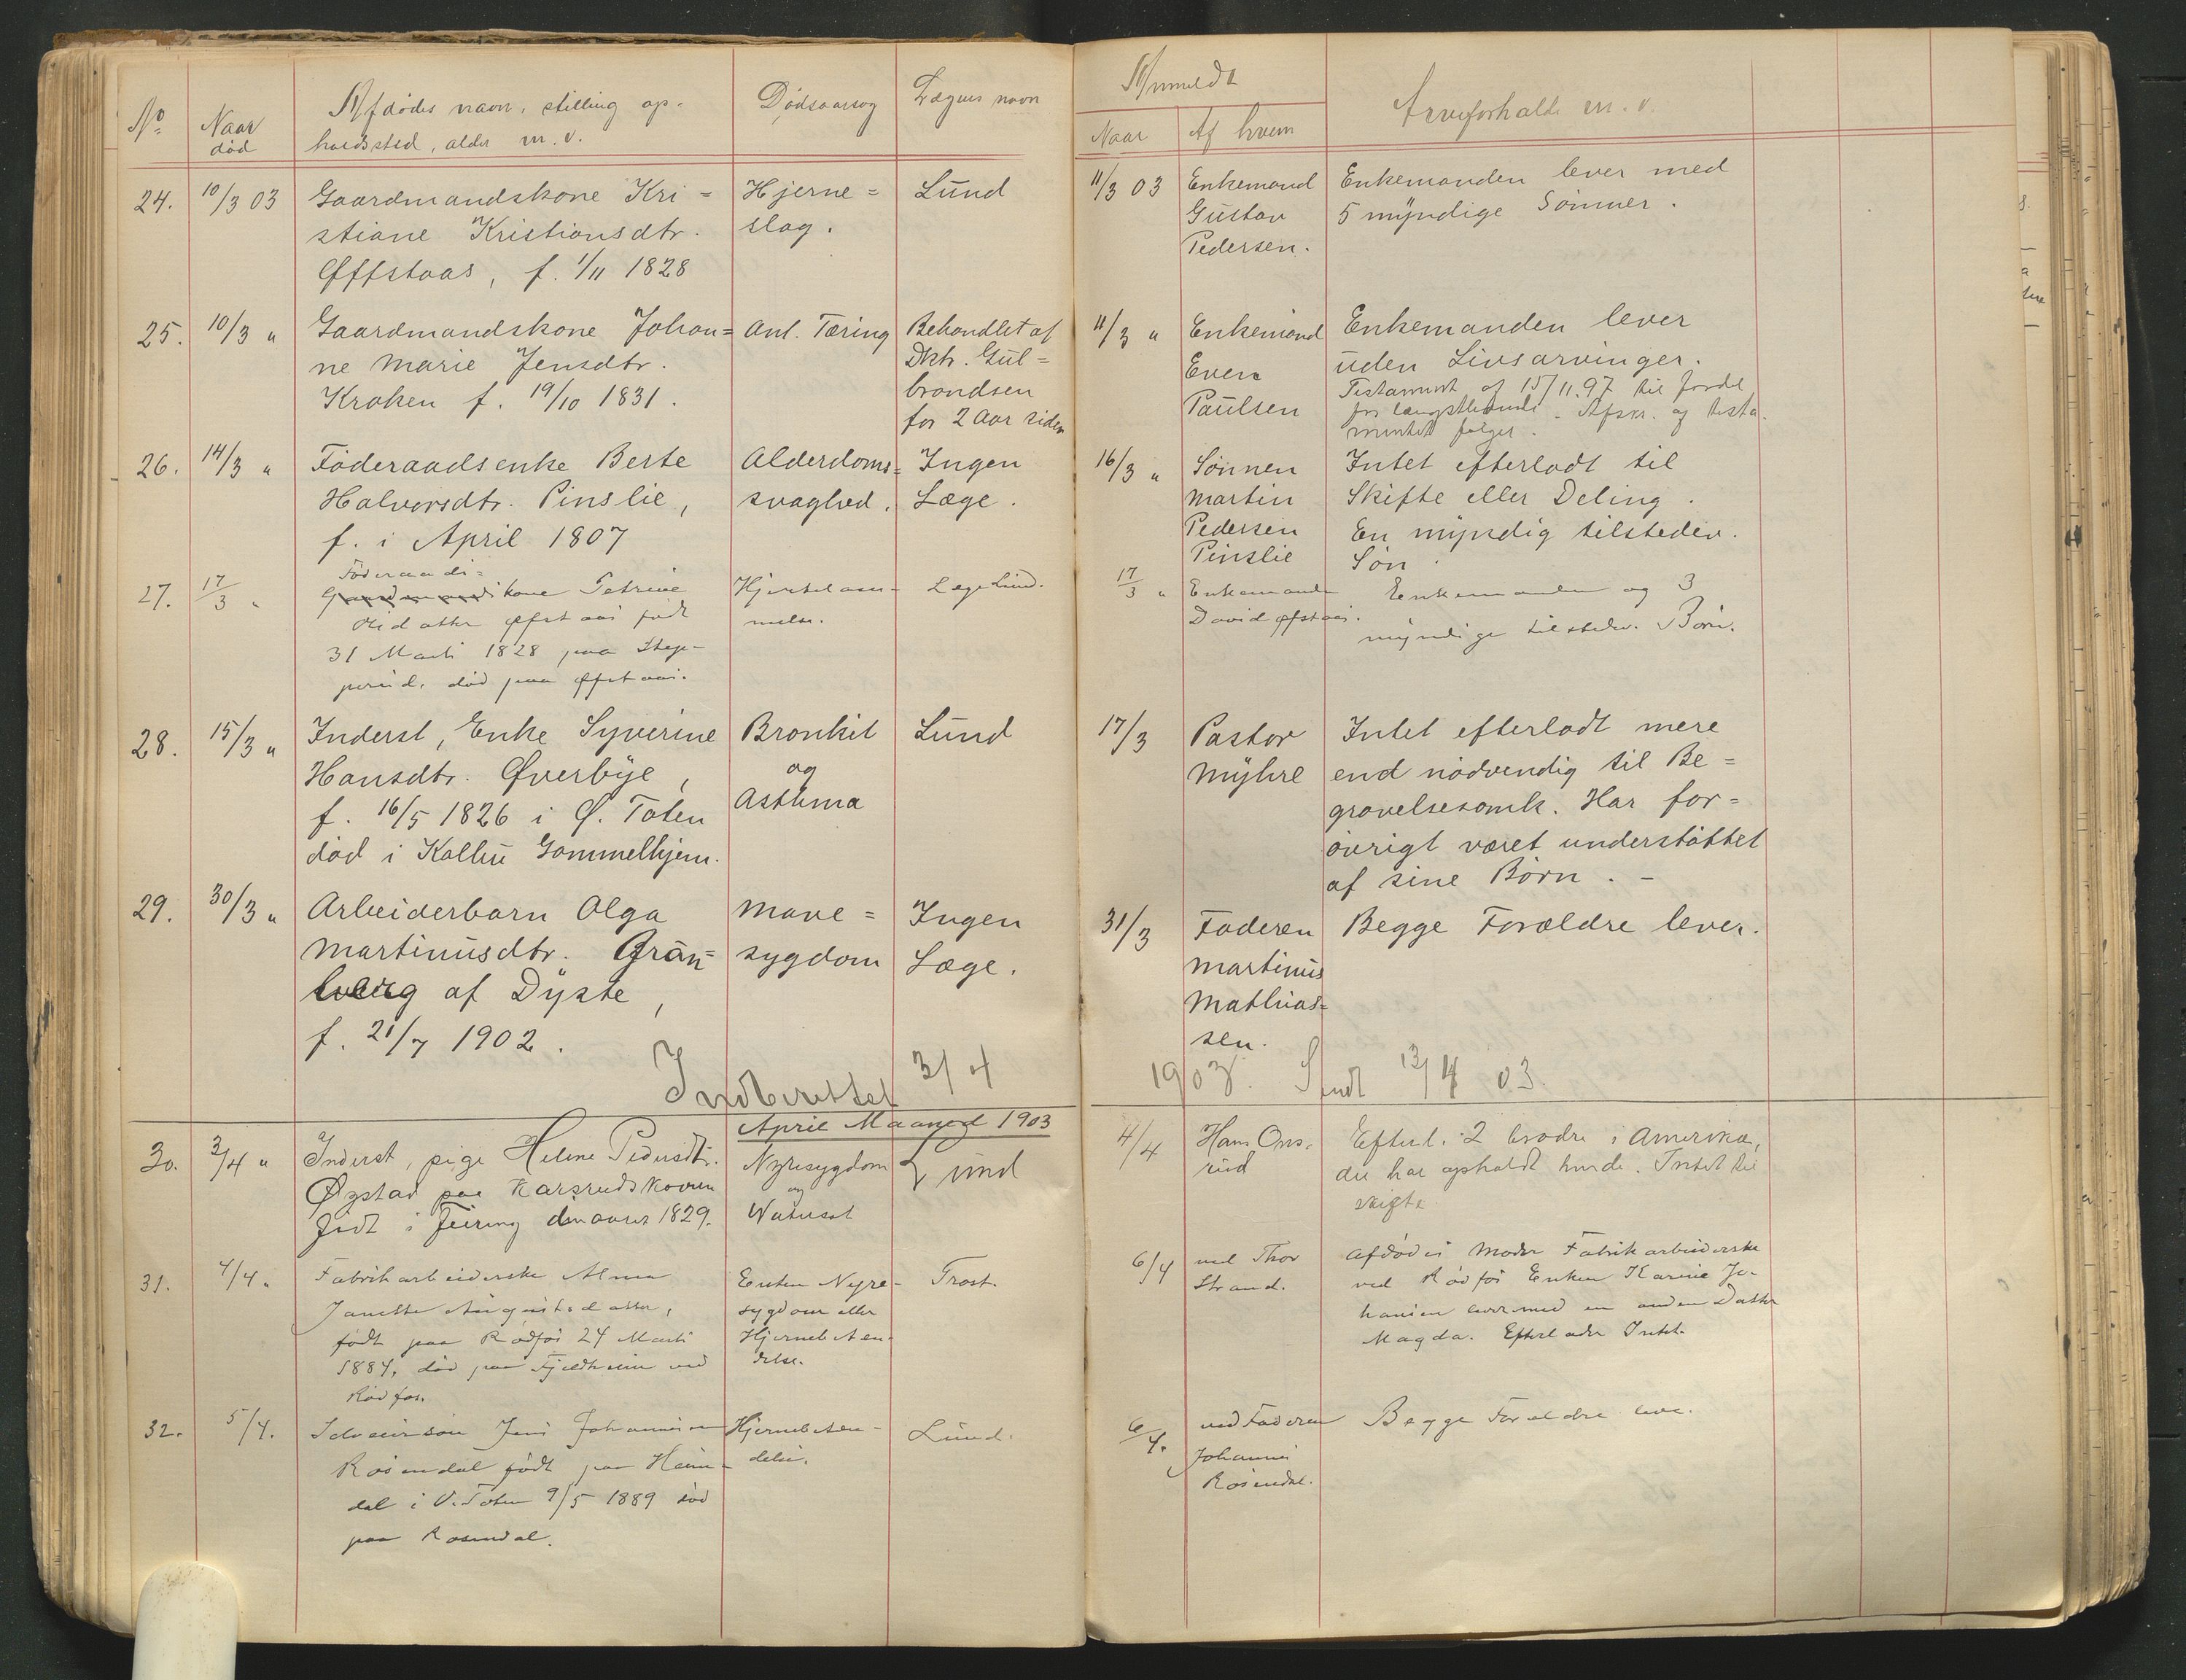 No
Naar
død
Afdødes navn, stilling op-
holdssted, alder m. v.
Dødsaarsag
Lægens navn
Anmeldt
Naar
Af hvem
Arveforhold m. v.
24.
10/3 03
Gaardmandskone Kri=
stiane Kristiansdtr.
Øffstaas, f. 1/11 1828
Hjerne=
slag.
Lund
11/3 03
Enkemand
Gustav
Pedersen.
Enkemanden lever med
5 myndige Sønner.
25.
10/3 "
Gaardmandskone Johan=
ne Marie Jensdtr.
Kroken f. 19/10 1831.
Ant. Tæring
Behandlet af
Dktr. Gul=
brandsen
for 2 Aar siden
11/3 "
Enkemand
Even
Paulsen
Enkemanden lever
uden Livsarvinger.
Testament af 15/11.97 til fordel
for længstlevende. Afskr. og testa-
mentet følger.
26.
14/3 "
Føderaadsenke Berte
Halvorsdtr. Pinslie,
f. i April 1807
Alderdoms=
svaghed.
Ingen
Læge.
16/3 "
Sønnen
Martin
Pedersen
Pinslie
Intet efterladt til
Skifte eller Deling.
En myndig tilstedev.
Søn.
27.
17/3 "
Føderaads=
kone Petrine
Øfstaas født
31 Marts 1828 paa
død paa Øfstaas.
Hjertelam-
melse.
Læge Lund.
17/3 "
Enkemanden
David Øfstaas.
Enkemanden og 3
myndige tilstedev. Børn.
28.
15/3 "
Inderst, Enke Syverine
Hansdtr. Øverbye,
f. 16/5 1826 i Ø. Toten
død i Kolbu Gammelhjem.
Bronkit
og
Asthma
Lund
17/3
Pastor
Myhre
Intet efterladt mere
end nødvendig til Be=
gravelsesomk. Har for=
øvrigt været understøttet
af sine Børn. -
29.
30/3 "
Arbeiderbarn Olga
Martinusdtr. Grön=
berg af Dyste,
f. 21/7 1902.
Mave=
sygdom
Ingen
Læge.
31/3
Faderen
Martinus
Mathias=
sen.
Begge Forældre lever.
Indberettet 3/4
1903. Sendt 13/4 03.
April Maaned 1903
30.
3/4 "
Inderst, pige Helene Pedersdtr.
Øgstad paa Karsrudskoven
født i Feiring den aaret 1829.
Nyresygdom
og
Vatersot
Lund
4/4
Hans Ons-
rud
Efterl. 2 brødre i Amerika,
der har opholdt hende. Intet til
skifte
31.
4/4 "
Fabrikarbeiderske Alma
Janette Augustsdatter,
født paa Rødfos 24 Marts
1884, død paa Fjeldheim ved
Rødfos.
Enten Nyre-
sygdom eller
Hjernebeten-
delse.
Trost.
6/4
ved Thor
Strand.
Afdødes Moder Fabrikarbeiderske
ved Rødfos Enken Karine Jo-
hansen lever med en anden Datter
Magda. Efterlader Intet.
32.
5/4.
Selveiersøn Jens Johannesen
Rosendal født paa Heim-
dal i V. Toten 9/5 1889 død
paa Rosendal.
Hjernebeten-
delse.
Lund.
6/4.
ved Faderen
Johannes
Rosendal.
Begge Forældre lever.